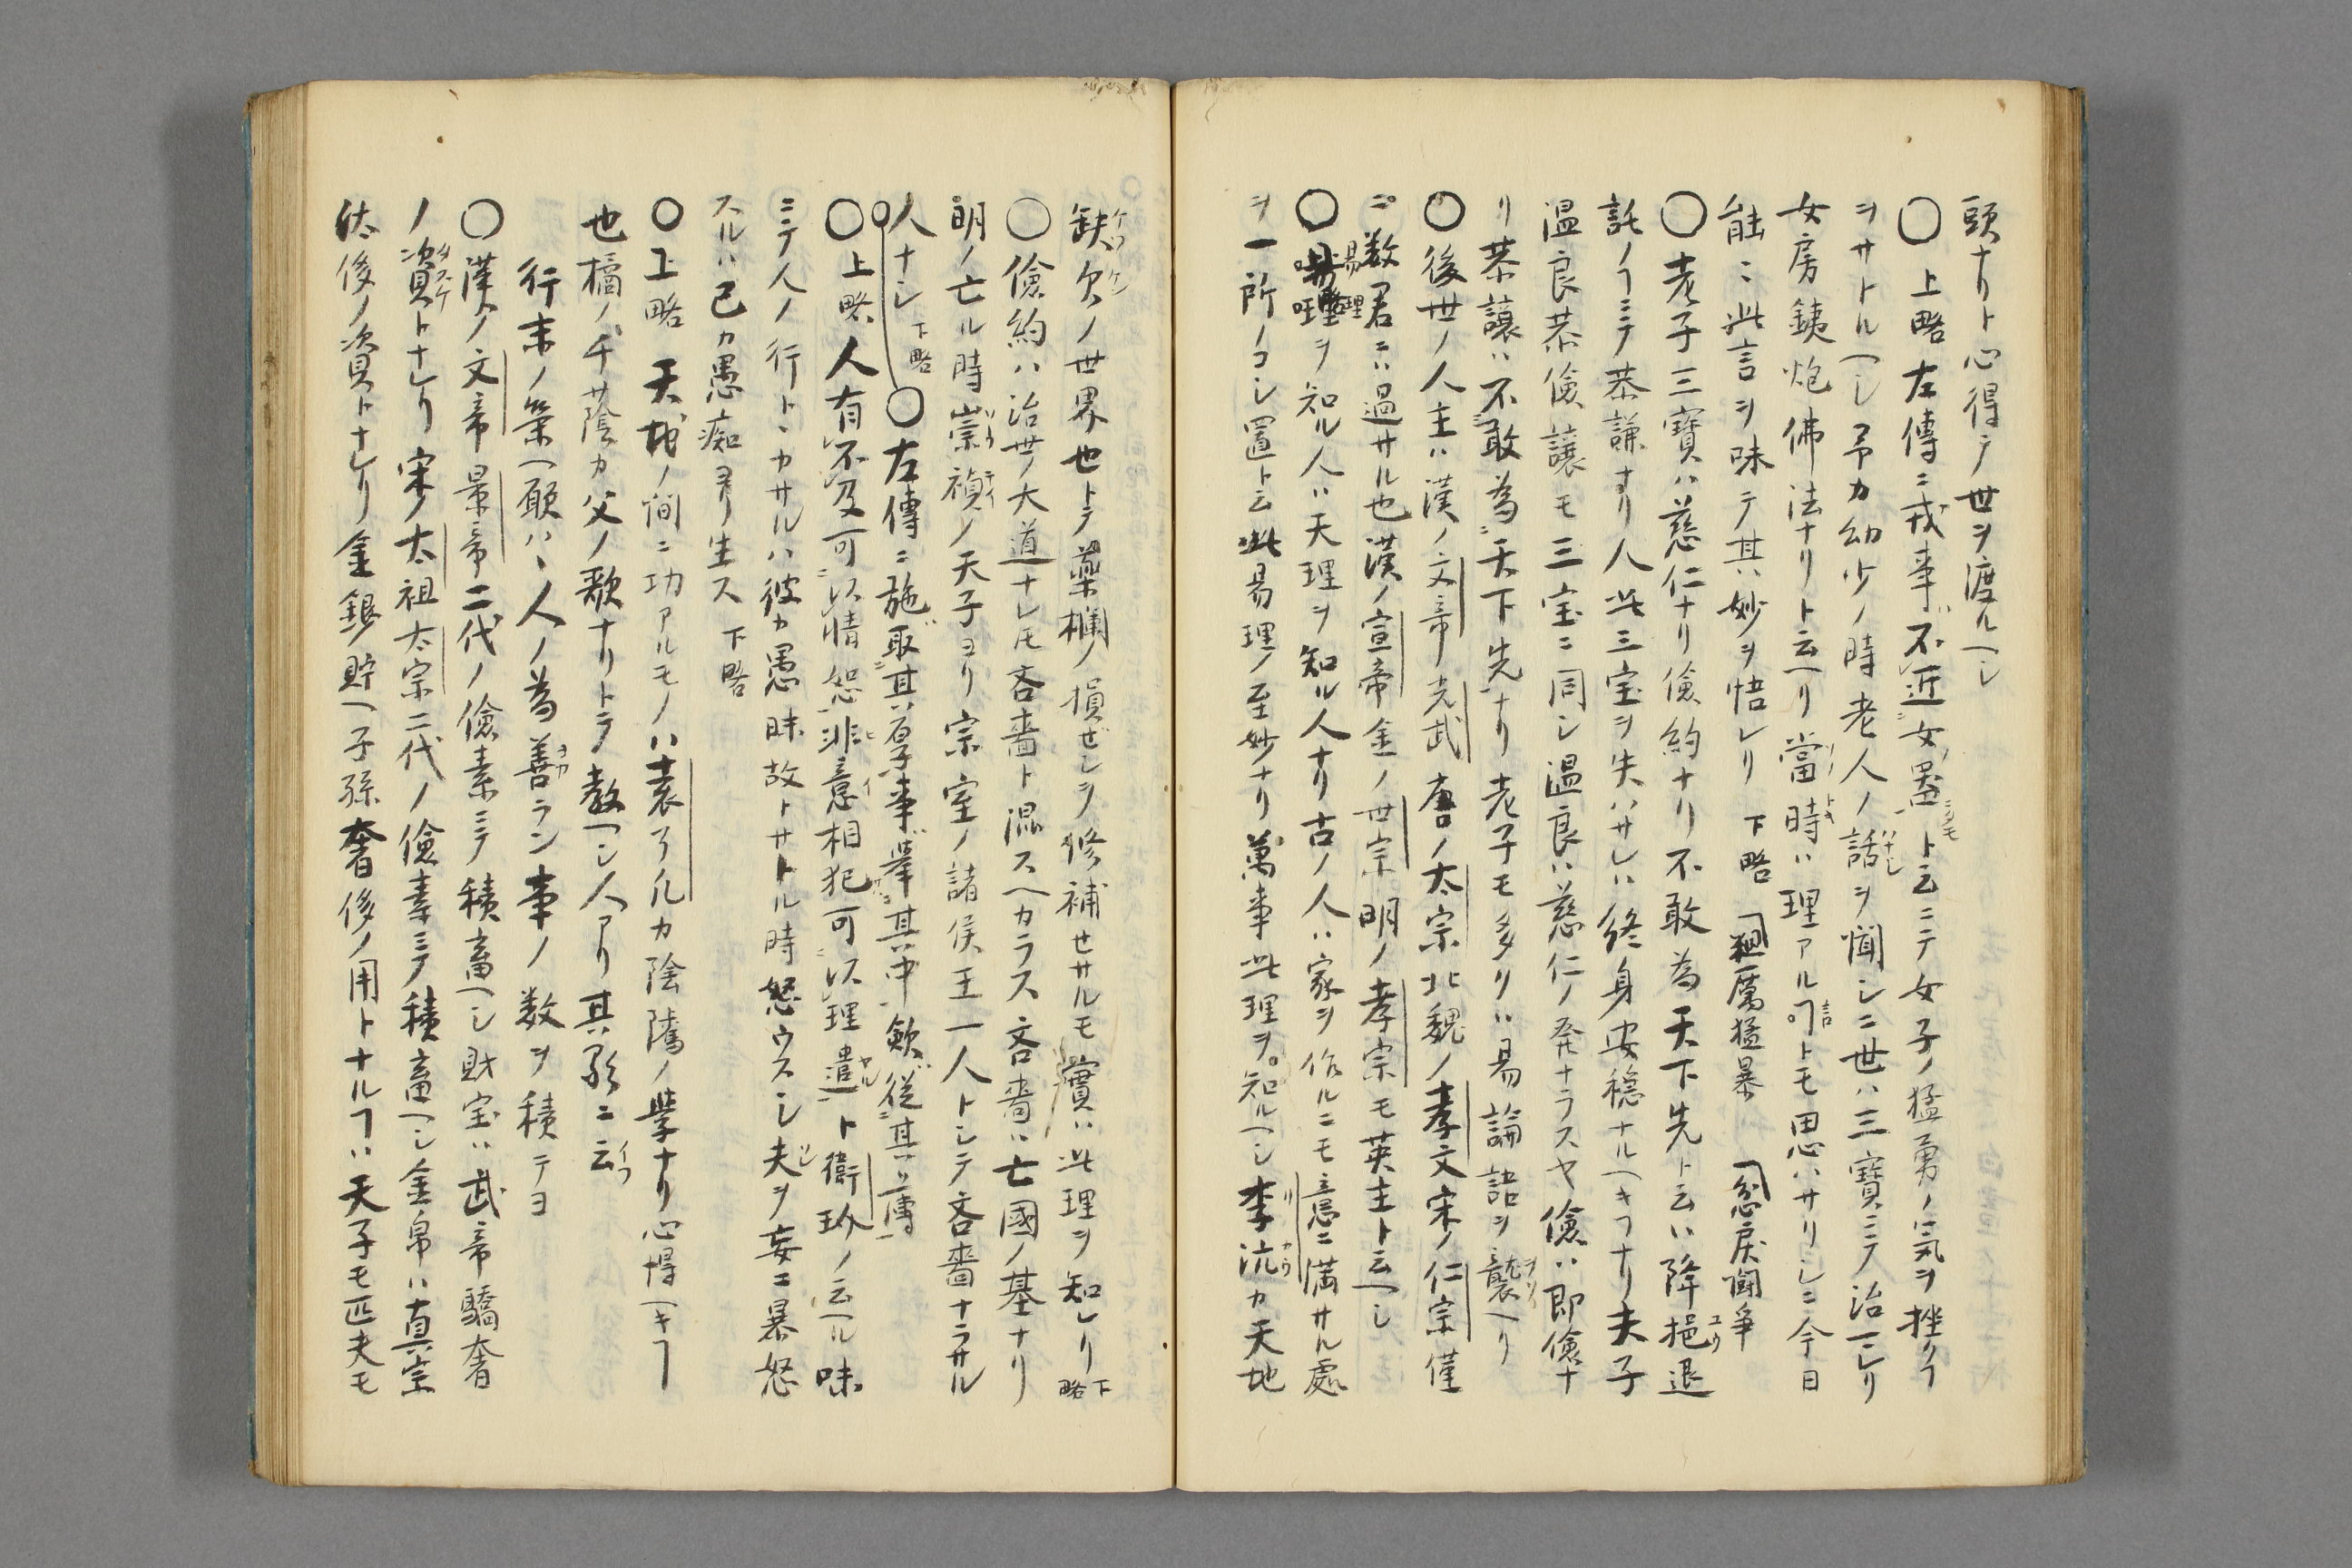 頭ナリト心得テ世ヲ渡ルヘシ
○上略左傳ニ戎事不近女器ト云ニテ女子ノ猛勇ノ氣ヲ挫クヿ
ヲサトルヘシ予カ幼少ノ時老人ノ話ヲ聞シニ世ハ三寳ニテ治マレリ
女房鉄炮佛法ナリト云ヘリ當時ハ理アルヿトモ思ハサリシニ今日
能ニ此言ヲ味テ其妙ヲ悟レリ 下略 「粗厲猛暴 「忿戻闘争
○老子三寳ハ慈仁ナリ儉約ナリ不敢為天下先ト云ハ降挹退
託ノヿニテ恭謙ナリ人此三宝ヲ失ハサレハ終身安穏ナルヘキヿナリ夫子
温良恭儉譲モ三宝ニ同シ温良ハ慈仁ノ発ナラスヤ儉ハ即儉ナ
リ恭譲ハ不敢為天下先ナリ老子モ多クハ易論語ヲ襲ヘリ
○後世ノ人主ハ漢ノ文帝光武唐ノ太宗北魏ノ孝文宋ノ仁宗僅
ニ数君ニハ過サル也漢ノ宣帝金ノ世宗明ノ孝宗モ英主ト云ヘシ
○易理ヲ知ル人ハ天理ヲ知ル人ナリ古ノ人ハ家ヲ作ルニモ意ニ満サル處
ヲ一所ノコシ置ト云此易理ノ至妙ナリ萬事此理ヲ知ルヘシ李沆カ天地
缺欠ノ世界也トテ藥欄ノ損ゼシヲ修補セサルモ實ハ此理ヲ知レリ下略
○儉約ハ治世ノ大道ナレモ吝嗇ト混スヘカラス吝嗇ハ亡國ノ基ナリ
明ノ亡ル時崇禎ノ天子ヨリ宗室ノ諸侯王一人トシテ吝嗇ナラサル
人ナシ 下略 ○左傳ニ施取其厚事挙其中歛従其薄
○上略人有不及可以情恕非意相犯可以理遣ト衛玠ノ云ヘル味
ニテ人ノ行トヽカサルハ彼カ愚昧故トサトル時怒ウスシ夫ヲ妄ニ暴怒
スルハ己カ愚痴ヨリ生ス 下略
○上略天地ノ間ニ功アルモノハ袁了凡カ陰隲ノ学ナリ心得ヘキヿ
也橘ノ千蔭カ父ノ歌ナリトテ教ヘシ人アリ其歌ニ云
行末ノ策ヘ願ハヽ人ノ為善ラン事ノ数ヲ積テヨ
○漢ノ文帝景帝二代ノ儉素ニテ積畜ヘシ財宝ハ武帝驕奢
ノ資トナレリ宋ノ太祖太宗二代ノ儉素ニテ積畜ヘシ金帛ハ真宗
侈ノ資トナレリ金銀ノ貯ヘ子孫奢侈ノ用トナルヿハ天子モ匹夫モ